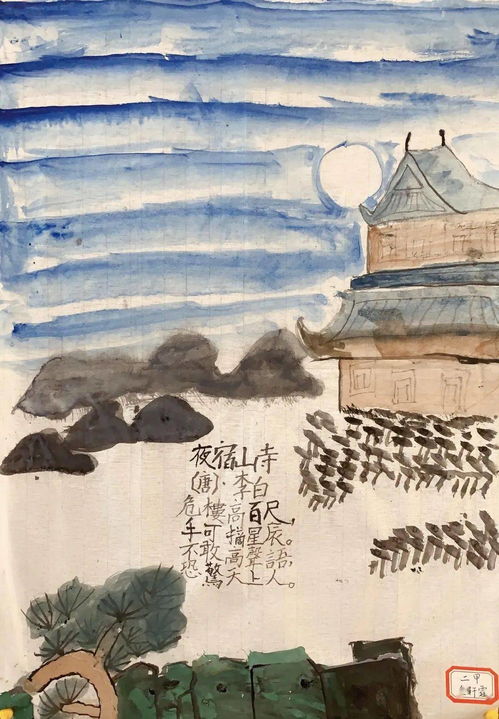 夜宿山寺
(唐)·李白
危樓高百尺,
手可摘星辰。
不敢高聲語。
恐驚天上人。
二甲
軒